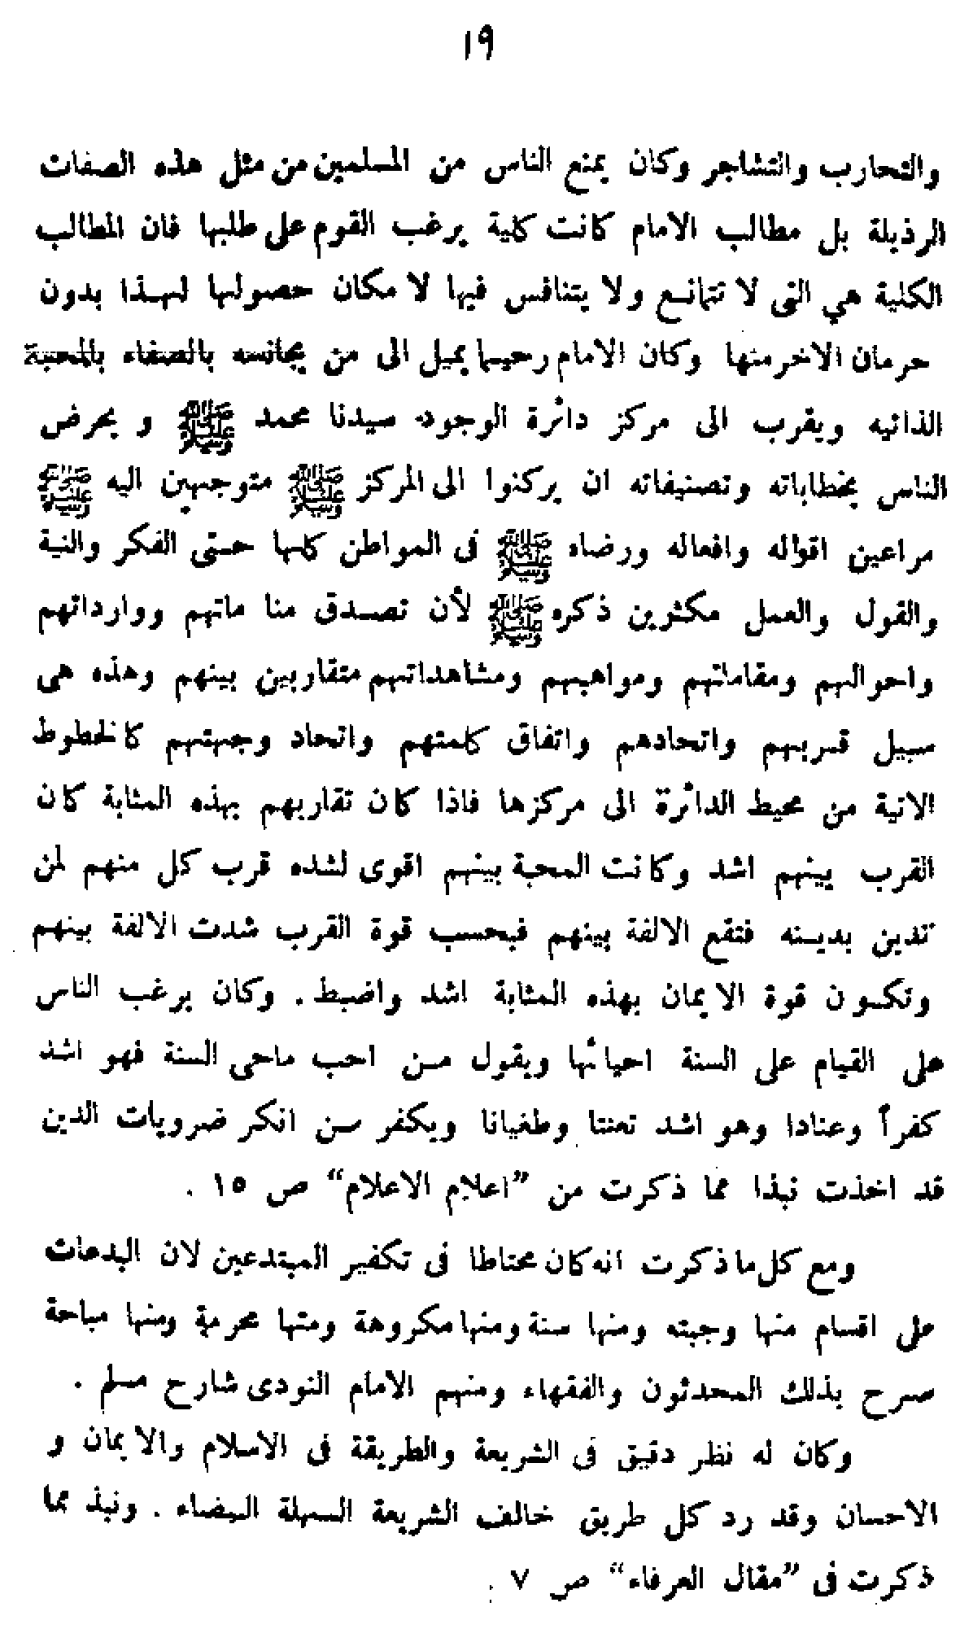 ١٩
والتحارب والتشاجر وكان يمنع الناس من المسلمين من مثل هذه الصفات
الرذيلة بل مطالب الامام كانت كلية يرغب القوم على طلبها فان المطالب
الكلية هي التى لا تتمانع ولا يتنافس فيها لا مكان حصولها لهذا بدون
حرمان الاخر منها وكان الامام رحيما يميل الى من يجانسه بالصفاء بالمحبة
الذاتيه ويقرب الى مركز دائرة الوجود سيدنا محمد ﷺ و يحرض
الناس بخطاباته وتصنيفاته ان يركنوا الى المركز ﷺ متوجهين اليه ﷺ
مراعين اقواله وافعاله ورضاء ﷺ فى المواطن كلها حتى الفكر والنية
والقول والعمل مكثرين ذكره ﷺ لأن تصدق منا ماتهم ووارداتهم
واحوالهم ومقاماتهم ومواهبهم ومشاهداتهم متقاربين بينهم وهذه هى
سبيل قربهم واتحادهم واتفاق كلمتهم واتحاد وجهتهم كالخطوط
الاتية من محيط الدائرة الى مركزها فاذا كان تقاربهم بهذه المثابة كان
القرب بينهم اشد وكانت المحبة بينهم اقوى لشده قرب كل منهم لمن
تدين بدينه فتقع الالفة بينهم فبحسب قوة القرب شدت الالفة بينهم
وتكون قوة الايمان بهذه المثابة اشد واضبط . وكان يرغب الناس
على القيام على السنة احيائها ويقول من احب ماحى السنة فهو اشد
كفرأ وعنادا وهو اشد تعنتا وطغيانا ويكفر سن انكر ضرويات الدين
قد اخذت نبذا مما ذكرت من ”اعلام الاعلام“ ص ١٥ .
ومع كل ما ذكرت انه كان محتاطا فى تكفير المبتدعين لان البدعات
على اقسام منها وجبته ومنها سنة ومنها مكروهة ومنها محرمة ومنها مباحة
صرح بذلك المحدثون والفقهاء ومنهم الامام النودى شارح مسلم .
وكان له نظر دقيق فى الشريعة والطريقة فى الاسلام والايمان و
الاحسان وقد رد كل طريق خالف الشريعة السهلة البيضاء . ونبذ مما
ذكرت فى ”مقال العرفاء“ ص ٧ .